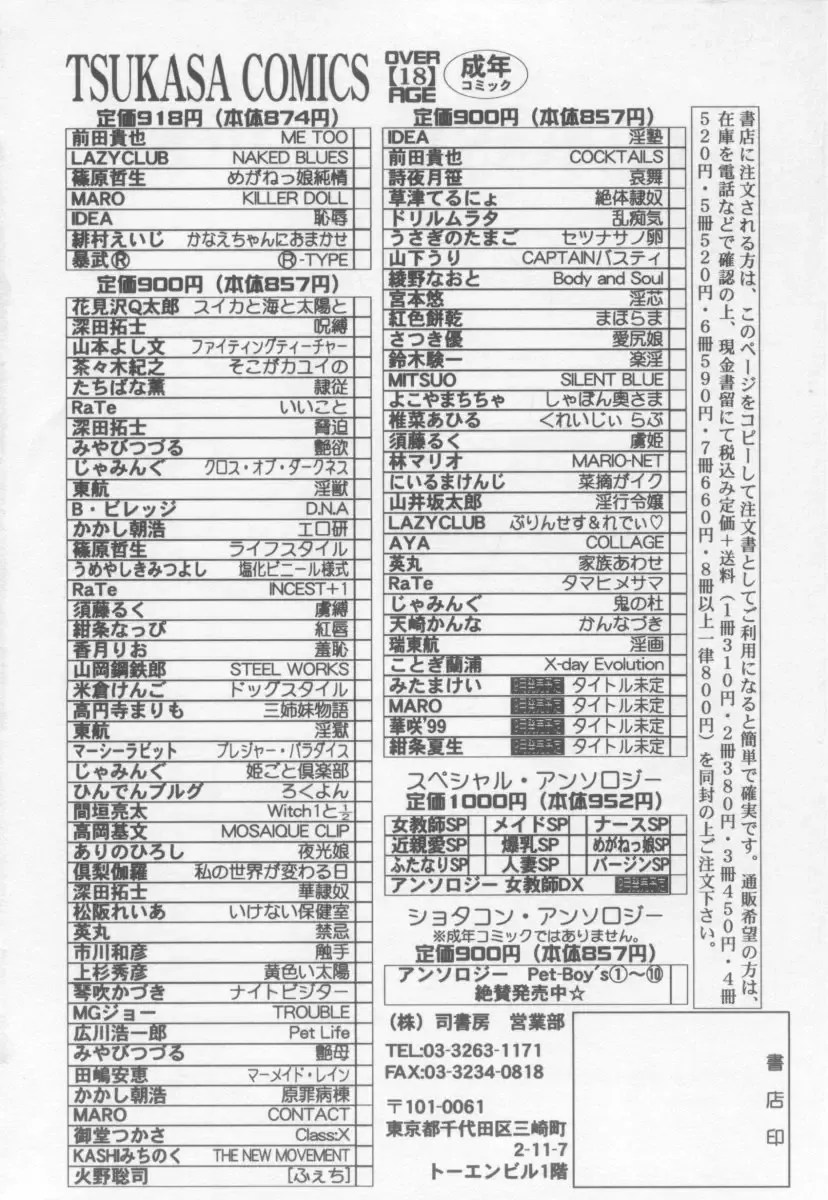 TSUKASA COMICS
OVER
【18】
AGE
成年
コミック
定価918円（本体874円）
前田貴也 ME TOO
LAZYCLUB NAKED BLUES
篠原哲生 めがねっ娘純情
MARO KILLER DOLL
IDEA 恥辱
緋村えいじ かなえちゃんにおまかせ
暴武Ⓡ Ⓡ-TYPE
定価900円（本体857円）
花見沢Q太郎 スイカと海と太陽と
深田拓士 呪縛
山本よし文 ファイティングティーチャー
茶々木紀之 そこがカユイの
たちばな薫 隷従
RaTe いいこと
深田拓士 脅迫
みやびつづる 艶欲
じゃみんぐ クロス・オブ・ダークネス
東航 淫獣
B・ビレッジ D.N.A
かかし朝浩 エロ研
篠原哲生 ライフスタイル
うめやしきみつよし 塩化ビニール様式
RaTe INCEST+1
須藤るく 虜縛
紺条なっぴ 紅唇
香月りお 羞恥
山岡鋼鉄郎 STEEL WORKS
米倉けんご ドッグスタイル
高円寺まりも 三姉妹物語
東航 淫獄
マーシーラビット プレジャー・パラダイス
じゃみんぐ 姫ごと倶楽部
ひんでんブルグ ろくよん
間垣亮太 Witch1と½
高岡基文 MOSAIQUE CLIP
ありのひろし 夜光娘
倶梨伽羅 私の世界が変わる日
深田拓士 華隷奴
松阪れいあ いけない保健室
英丸 禁忌
市川和彦 触手
上杉秀彦 黄色い太陽
琴吹かづき ナイトビジター
MGジョー TROUBLE
広川浩一郎 Pet Life
みやびつづる 艶母
田嶋安恵 マーメイド・レイン
かかし朝浩 原罪病棟
MARO CONTACT
御堂つかさ Class:X
KASHIみちのく THE NEW MOVEMENT
火野聡司 [ふぇち]
定価900円（本体857円）
IDEA 淫塾
前田貴也 COCKTAILS
詩夜月笹 哀舞
草津てるにょ 絶体隷奴
ドリルムラタ 乱痴気
うさぎのたまご セツナサノ卵
山下うり CAPTAINバスティ
綾野なおと Body and Soul
宮本悠 淫芯
紅色餅乾 まほらま
さつき優 愛尻娘
鈴木験一 楽淫
MITSUO SILENT BLUE
よこやまちちゃ しゃぼん奥さま
椎菜あひる くれいじぃ らぶ
須藤るく 虜姫
林マリオ MARIO-NET
にいるまけんじ 菜摘がイク
山井坂太郎 淫行令嬢
LAZYCLUB ぷりんせす&れでぃ♡
AYA COLLAGE
英丸 家族あわせ
RaTe タマヒメサマ
じゃみんぐ 鬼の杜
天崎かんな かんなづき
瑞東航 淫画
ことぎ蘭浦 X-day Evolution
みたまけい タイトル未定
MARO タイトル未定
華咲'99 タイトル未定
紺条夏生 タイトル未定
スペシャル・アンソロジー
定価1000円（本体952円）
女教師SP メイドSP ナースSP
近親愛SP 爆乳SP めがねっ娘SP
ふたなりSP 人妻SP バージンSP
アンソロジー 女教師DX
ショタコン・アンソロジー
※成年コミックではありません。
定価900円（本体857円）
アンソロジー Pet-Boy's①～⑩
絶賛発売中☆
（株）司書房 営業部
TEL:03-3263-1171
FAX:03-3234-0818
〒101-0061
東京都千代田区三崎町
2-11-7
トーエンビル1階
書店印
書店に注文される方は、このページをコピーして注文書としてご利用になると簡単で確実です。通販希望の方は、
在庫を電話などで確認の上、現金書留にて税込み定価＋送料（1冊310円・2冊380円・3冊450円・4冊
520円・5冊520円・6冊590円・7冊660円・8冊以上一律800円）を同封の上ご注文下さい。